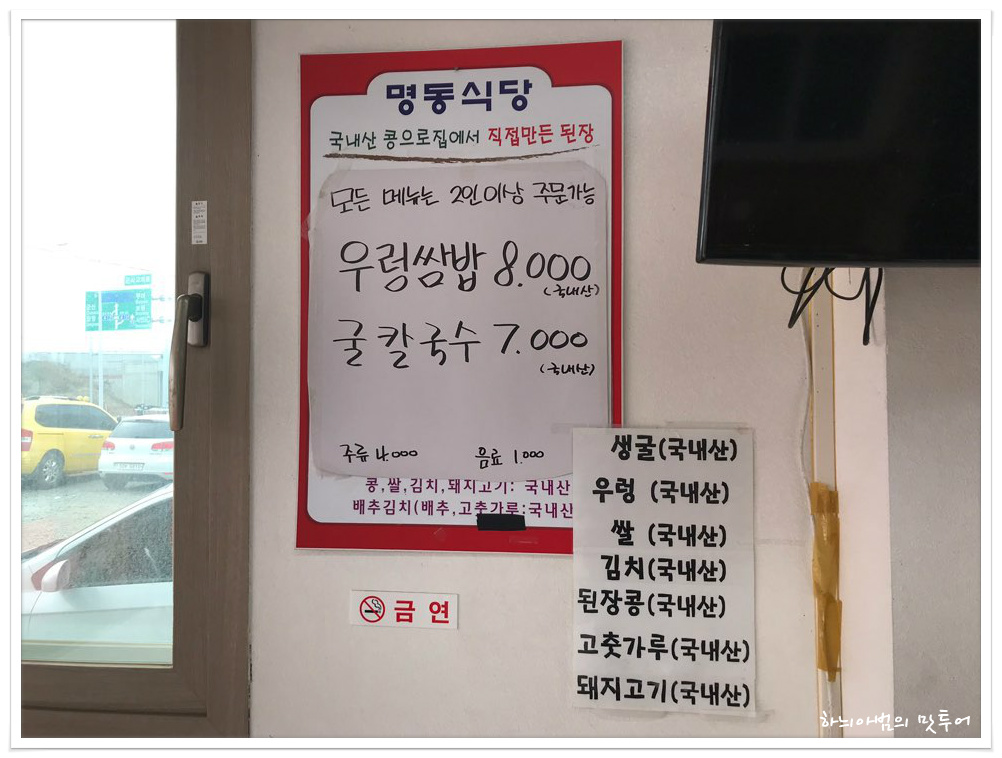 명동식당
국내산 콩으로집에서 직접만든 된장
모든 메뉴는 2인이상 주문가능
우렁쌈밥 8.000
(국내산)
굴칼국수 7.000
(국내산)
주류 4.000 음료 1.000
콩,쌀,김치,돼지고기: 국내산
배추김치(배추,고춧가루:국내산
금연
생굴(국내산)
우렁 (국내산)
쌀 (국내산)
김치(국내산)
된장콩(국내산)
고춧가루(국내산)
돼지고기(국내산)
하늬아범의 맛투어